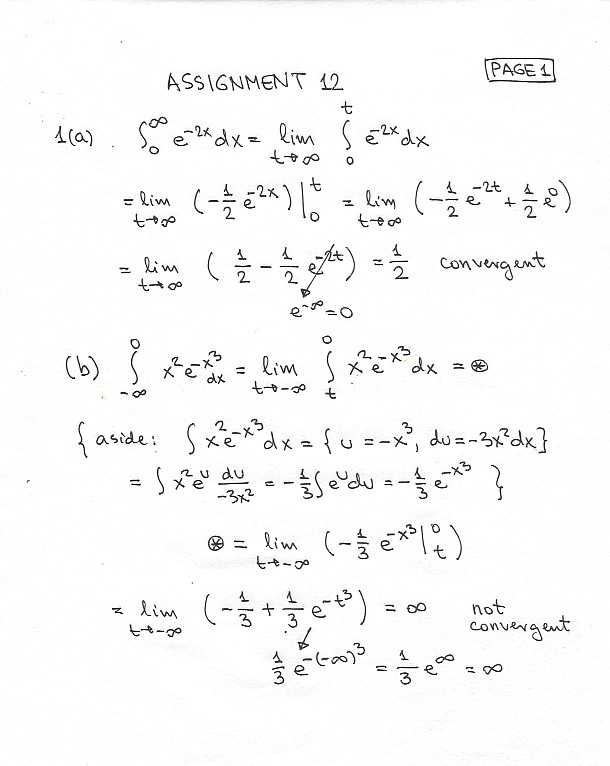 PAGE 1
ASSIGNMENT 12
1(a). ∫₀^∞ e^{-2x} dx = lim_{t→∞} ∫₀^t e^{-2x} dx
= lim_{t→∞} (-1/2 e^{-2x}) |₀^t = lim_{t→∞} (-1/2 e^{-2t} + 1/2 e^0)
= lim_{t→∞} (1/2 - 1/2 e^{-2t}) = 1/2 convergent
e^{-∞} = 0
(b) ∫_{-∞}^0 x² e^{-x³} dx = lim_{t→-∞} ∫_t^0 x² e^{-x³} dx = ⊛
{ aside: ∫ x² e^{-x³} dx = { u = -x³, du = -3x² dx }
= ∫ x² e^u du/(-3x²) = -1/3 ∫ e^u du = -1/3 e^{-x³} }
⊛ = lim_{t→-∞} (-1/3 e^{-x³} |_t^0)
= lim_{t→-∞} (-1/3 + 1/3 e^{-t³}) = ∞ not convergent
1/3 e^{-(-∞)³} = 1/3 e^∞ = ∞